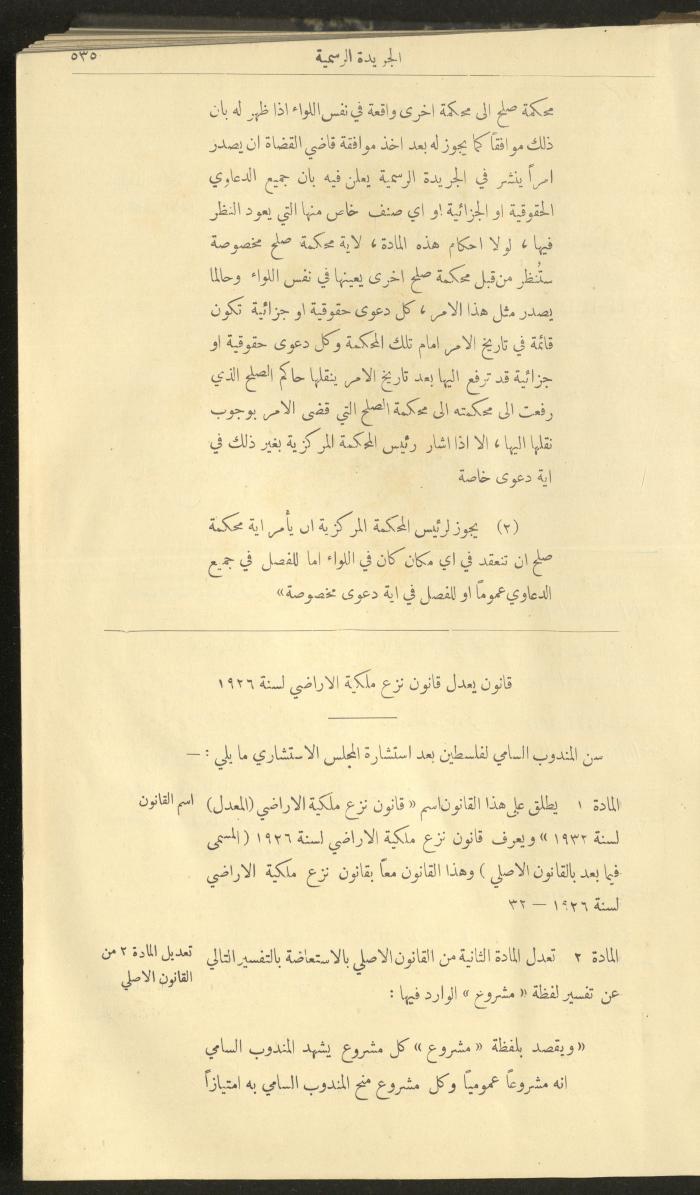 الجريدة الرسمية
٥٣٥
محكمة صلح الى محكمة اخرى واقعة في نفس اللواء اذا ظهر له بان
ذلك موافقاً كما يجوز له بعد اخذ موافقة قاضي القضاة ان يصدر
امراً ينشر في الجريدة الرسمية يعلن فيه بان جميع الدعاوي
الحقوقية او الجزائية او اي صنف خاص منها التي يعود النظر
فيها ، لولا احكام هذه المادة ، لاية محكمة صلح مخصوصة
ستُنظر من قبل محكمة صلح اخرى يعينها في نفس اللواء وحالما
يصدر مثل هذا الامر ، كل دعوى حقوقية او جزائية تكون
قائمة في تاريخ الامر امام تلك المحكمة وكل دعوى حقوقية او
جزائية قد ترفع اليها بعد تاريخ الامر ينقلها حاكم الصلح الذي
رفعت الى محكمته الى محكمة الصلح التي قضى الامر بوجوب
نقلها اليها ، الا اذا اشار رئيس المحكمة المركزية بغير ذلك في
اية دعوى خاصة
(٢) يجوز لرئيس المحكمة المركزية ان يأمر اية محكمة
صلح ان تنعقد في اي مكان كان في اللواء اما للفصل في جميع
الدعاوي عموماً او للفصل في اية دعوى مخصوصة»
قانون يعدل قانون نزع ملكية الاراضي لسنة ١٩٢٦
سن المندوب السامي لفلسطين بعد استشارة المجلس الاستشاري ما يلي : —
المادة ١ يطلق على هذا القانون اسم « قانون نزع ملكية الاراضي (المعدل)
اسم القانون
لسنة ١٩٣٢ » ويعرف قانون نزع ملكية الاراضي لسنة ١٩٢٦ ( المسمى
فيما بعد بالقانون الاصلي ) وهذا القانون معاً بقانون نزع ملكية الاراضي
لسنة ١٩٢٦ — ٣٢
المادة ٢ تعدل المادة الثانية من القانون الاصلي بالاستعاضة بالتفسير التالي
تعديل المادة ٢ من
القانون الاصلي
عن تفسير لفظة « مشروع » الوارد فيها :
« ويقصد بلفظة « مشروع » كل مشروع يشهد المندوب السامي
انه مشروعاً عمومياً وكل مشروع منح المندوب السامي به امتيازاً